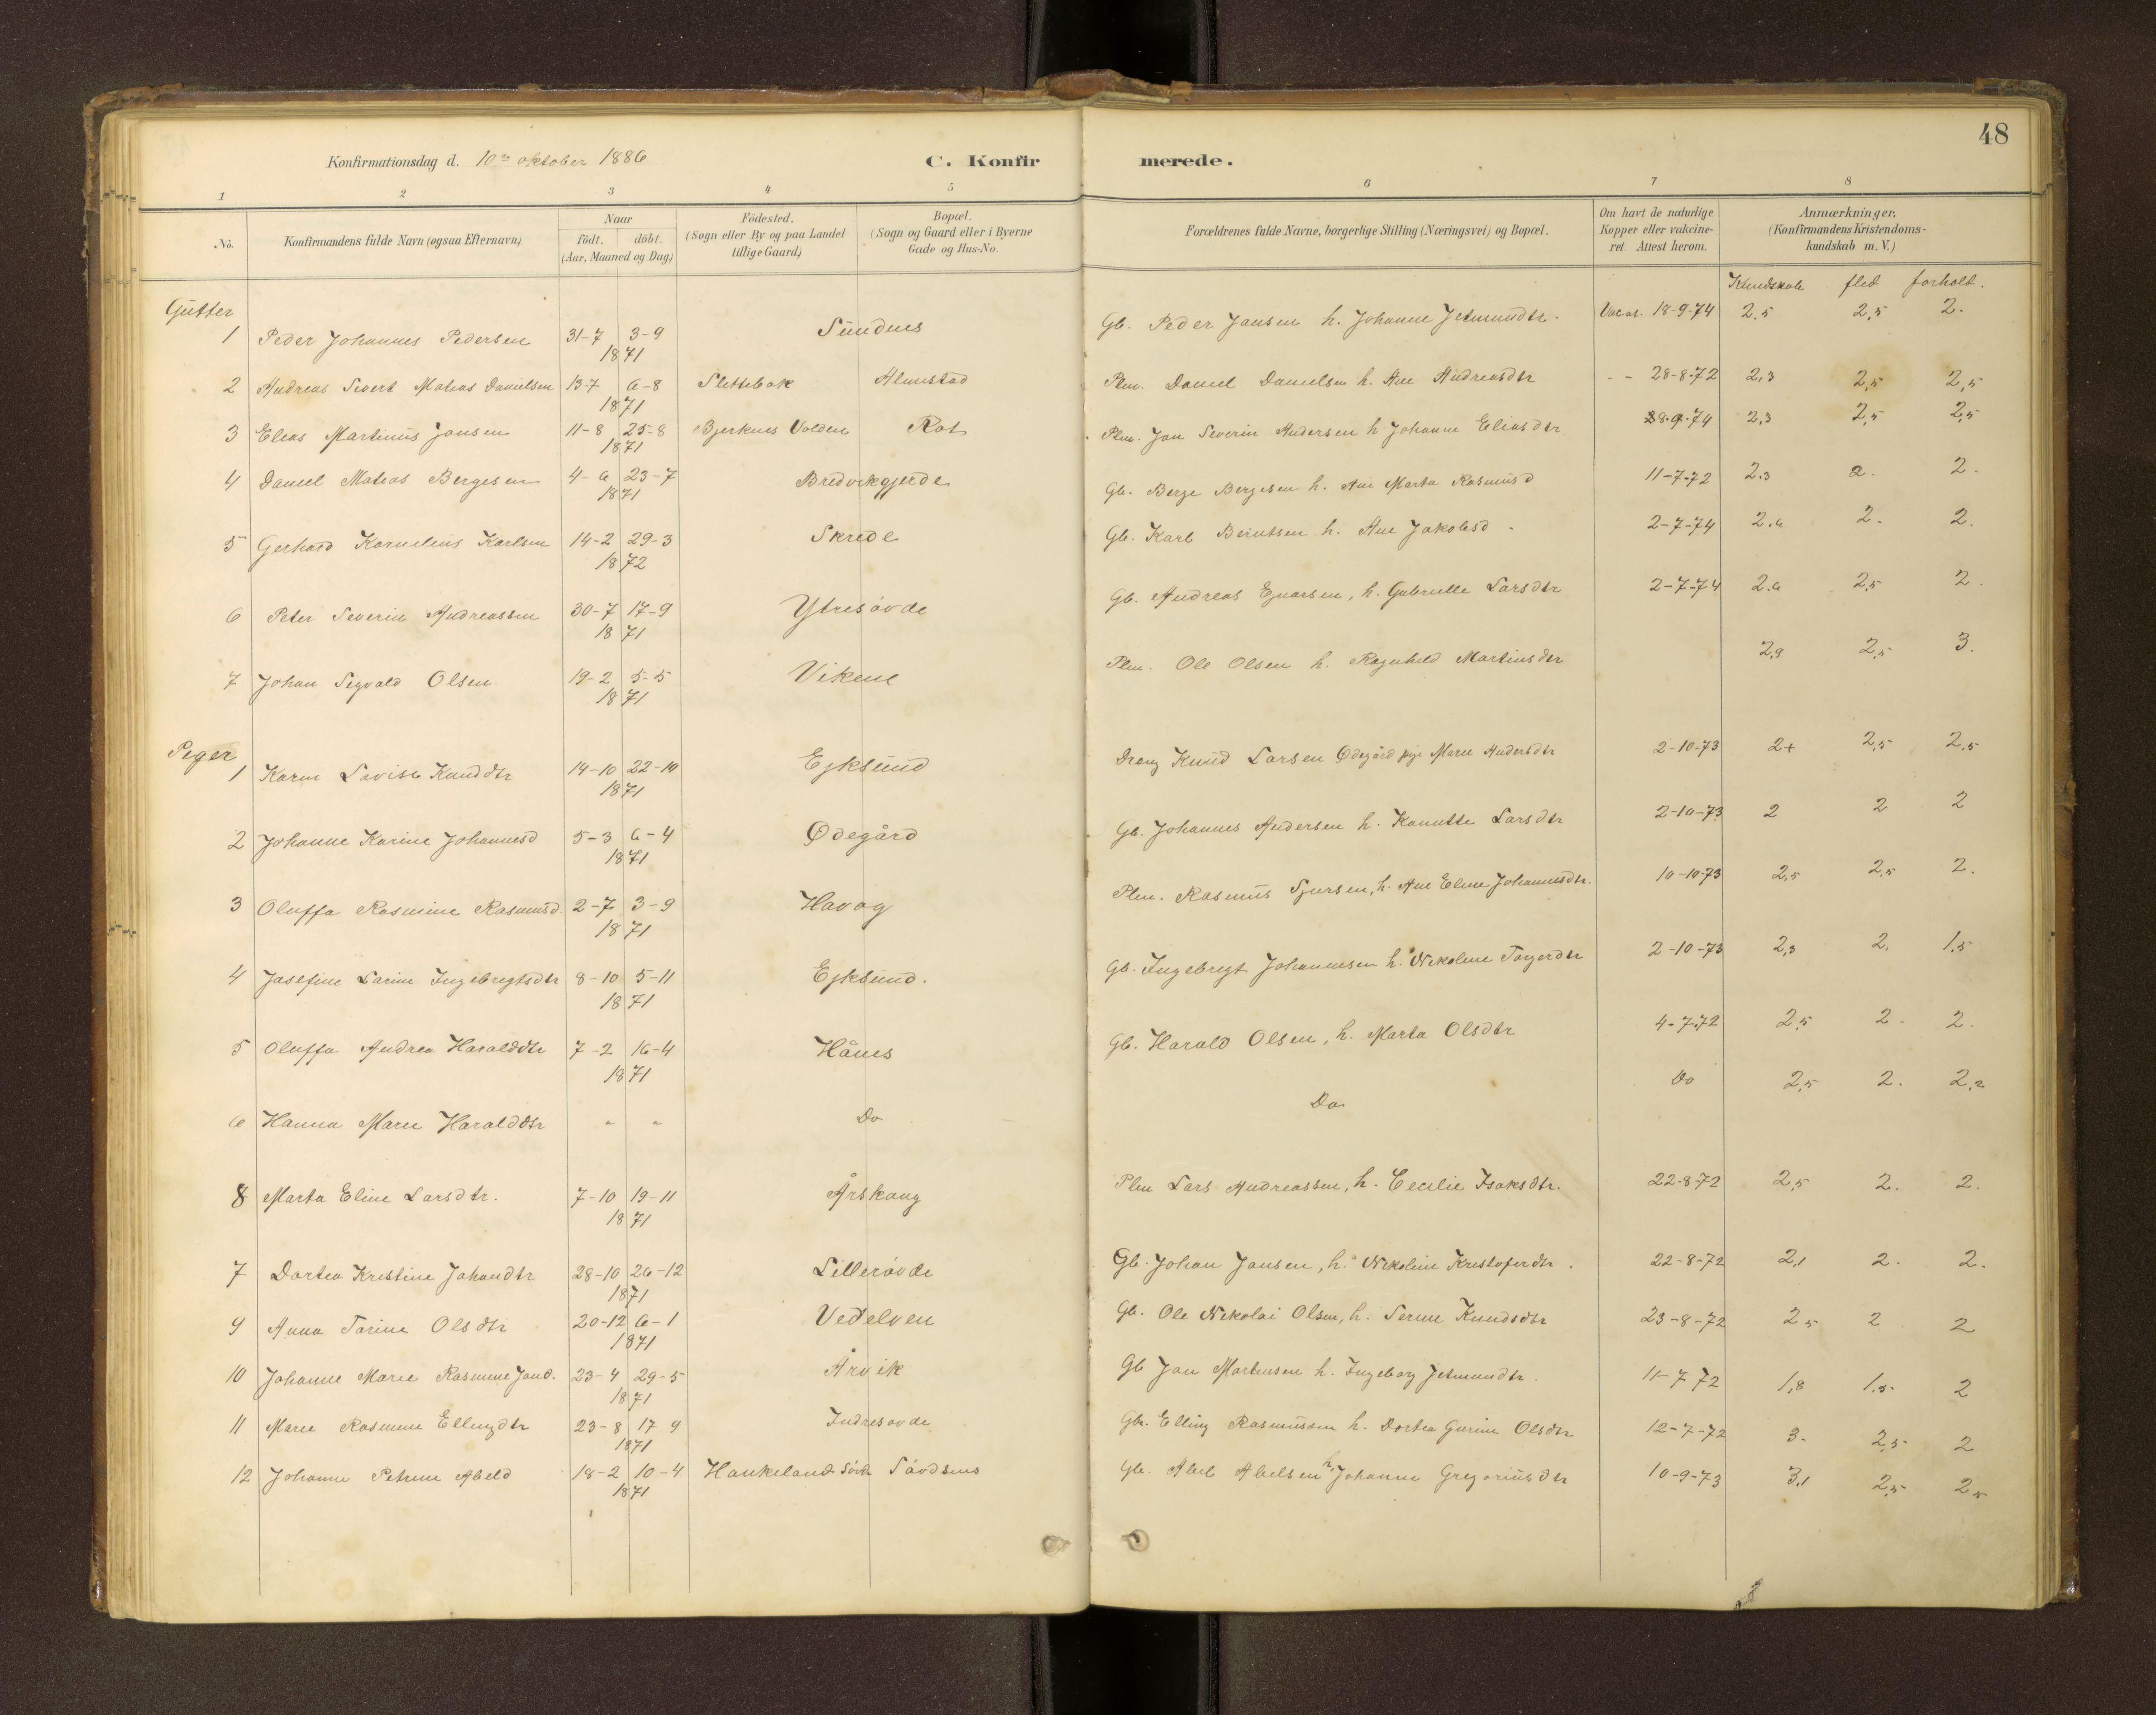 48
Konfirmationsdag d. 10de oktober 1886 C. Konfirmerede.
1 2 3 4 5 6 7 8
No. Konfirmandens fulde Navn (ogsaa Efternavn) Naar födt. döbt. (Aar, Maaned og Dag) Födested. (Sogn eller By og paa Landet tillige Gaard) Bopæl. (Sogn og Gaard eller i Byerne Gade og Hus-No. Forældrenes fulde Navne, borgerlige Stilling (Næringsvei) og Bopæl. Om havt de naturlige Kopper eller vakcineret. Attest herom. Anmærkninger, (Konfirmandens Kristendomskundskab m. V.)
Kundskab flid forhold.
Gutter
1 Peder Johannes Pedersen 31-7 3-9 1871 Sundnes Gb. Peder Jansen h. Johanne Jetmundtr. Vac. at. 18-9-74 2.5 2,5 2.
2 Andreas Sivert Matias Danielsen 13-7 6-8 1871 Slettebak Almestad Plm. Daniel Danielsen h. Ane Andreasdtr - - 28-8-72 2,3 2,5 2,5
3 Elias Martinus Jansen 11-8 25-8 1871 Bjerknes Volden Rot Plm. Jan Severin Andersen h Johanne Eliasdtr 28-9-74 2,3 2,5 2,5
4 Daniel Matias Bergesen 4-6 23-7 1871 Bredvikgjerde Gb. Berge Bergesen h. Ane Marta Rasmusd 11-7-72 2.3 2. 2.
5 Gerhard Kornelius Karlsen 14-2 29-3 1872 Skrede Gb. Karl Berntsen h. Ane Jakobsd. 2-7-74 2.6 2. 2.
6 Peter Severin Andreassen 30-7 17-9 1871 Ytresövde Gb. Andreas Ejnarsen, h. Gabrielle Larsdtr 2-7-74 2.6 2,5 2.
7 Johan Sigvald Olsen 19-2 5-5 1871 Vikene Plm. Ole Olsen h. Ragnhild Martinusdtr 2,9 2,5 3.
Piger
1 Karen Lovise Knuddtr 14-10 22-10 1871 Ejksund Dreng Knud Larsen Ødegård pige Marie Andersdtr 2-10-73 2+ 2,5 2,5
2 Johanne Karine Johannesd 5-3 6-4 1871 Ødegård Gb. Johannes Andersen h. Kanutte Larsdtr 2-10-73 2 2 2
3 Oluffa Rasmine Rasmusd. 2-7 3-9 1871 Havåg Plm. Rasmus Sjursen, h. Ane Eline Johannesdtr. 10-10-73 2,5 2,5 2.
4 Josefine Larine Ingebrigtsdtr 8-10 5-11 1871 Ejksund. Gb. Ingebrigt Johannesen h. Nikoline Torgerdtr 2-10-73 2,3 2. 1.5
5 Oluffa Andrea Haralddtr 7-2 16-4 1871 Hånes Gb. Harald Olsen, h. Marta Olsdtr 4-7-72 2,5 2. 2.
6 Hanna Marie Haralddtr - - Do Do Do 2,5 2. 2,2
8 Marta Eline Larsdtr. 7-10 19-11 1871 Årskaug Plm Lars Andreassen, h. Cecilie Isaksdtr. 22-8-72 2,5 2. 2.
7 Dortea Kristine Johandtr 28-10 26-12 1871 Lillesövde Gb. Johan Jansen, h. Nikoline Kristoferdtr. 22-8-72 2,1 2. 2.
9 Anna Torine Olsdtr 20-12 6-1 1871 Vedelven Gb. Ole Nikolai Olsen, h. Serine Knudsdtr 23-8-72 2,5 2 2
10 Johanne Marie Rasmine Jand. 23-4 29-5 1871 Årvik Gb Jan Martinsen h. Ingeborg Jetmundtr. 11-7 72 1,8 1.5 2
11 Marie Rasmine Ellingdtr 23-8 17 9 1871 Indresövde Gb. Elling Rasmussen h. Dortea Gurine Olsdtr 12-7-72 3- 2,5 2
12 Johanne Petrine Abeld 18-2 10-4 1871 Haukeland Sövde Sövdsnes Gb. Abel Abelsen h. Johanne Gregoriusdtr 10-9-73 3,1 2,5 2,5